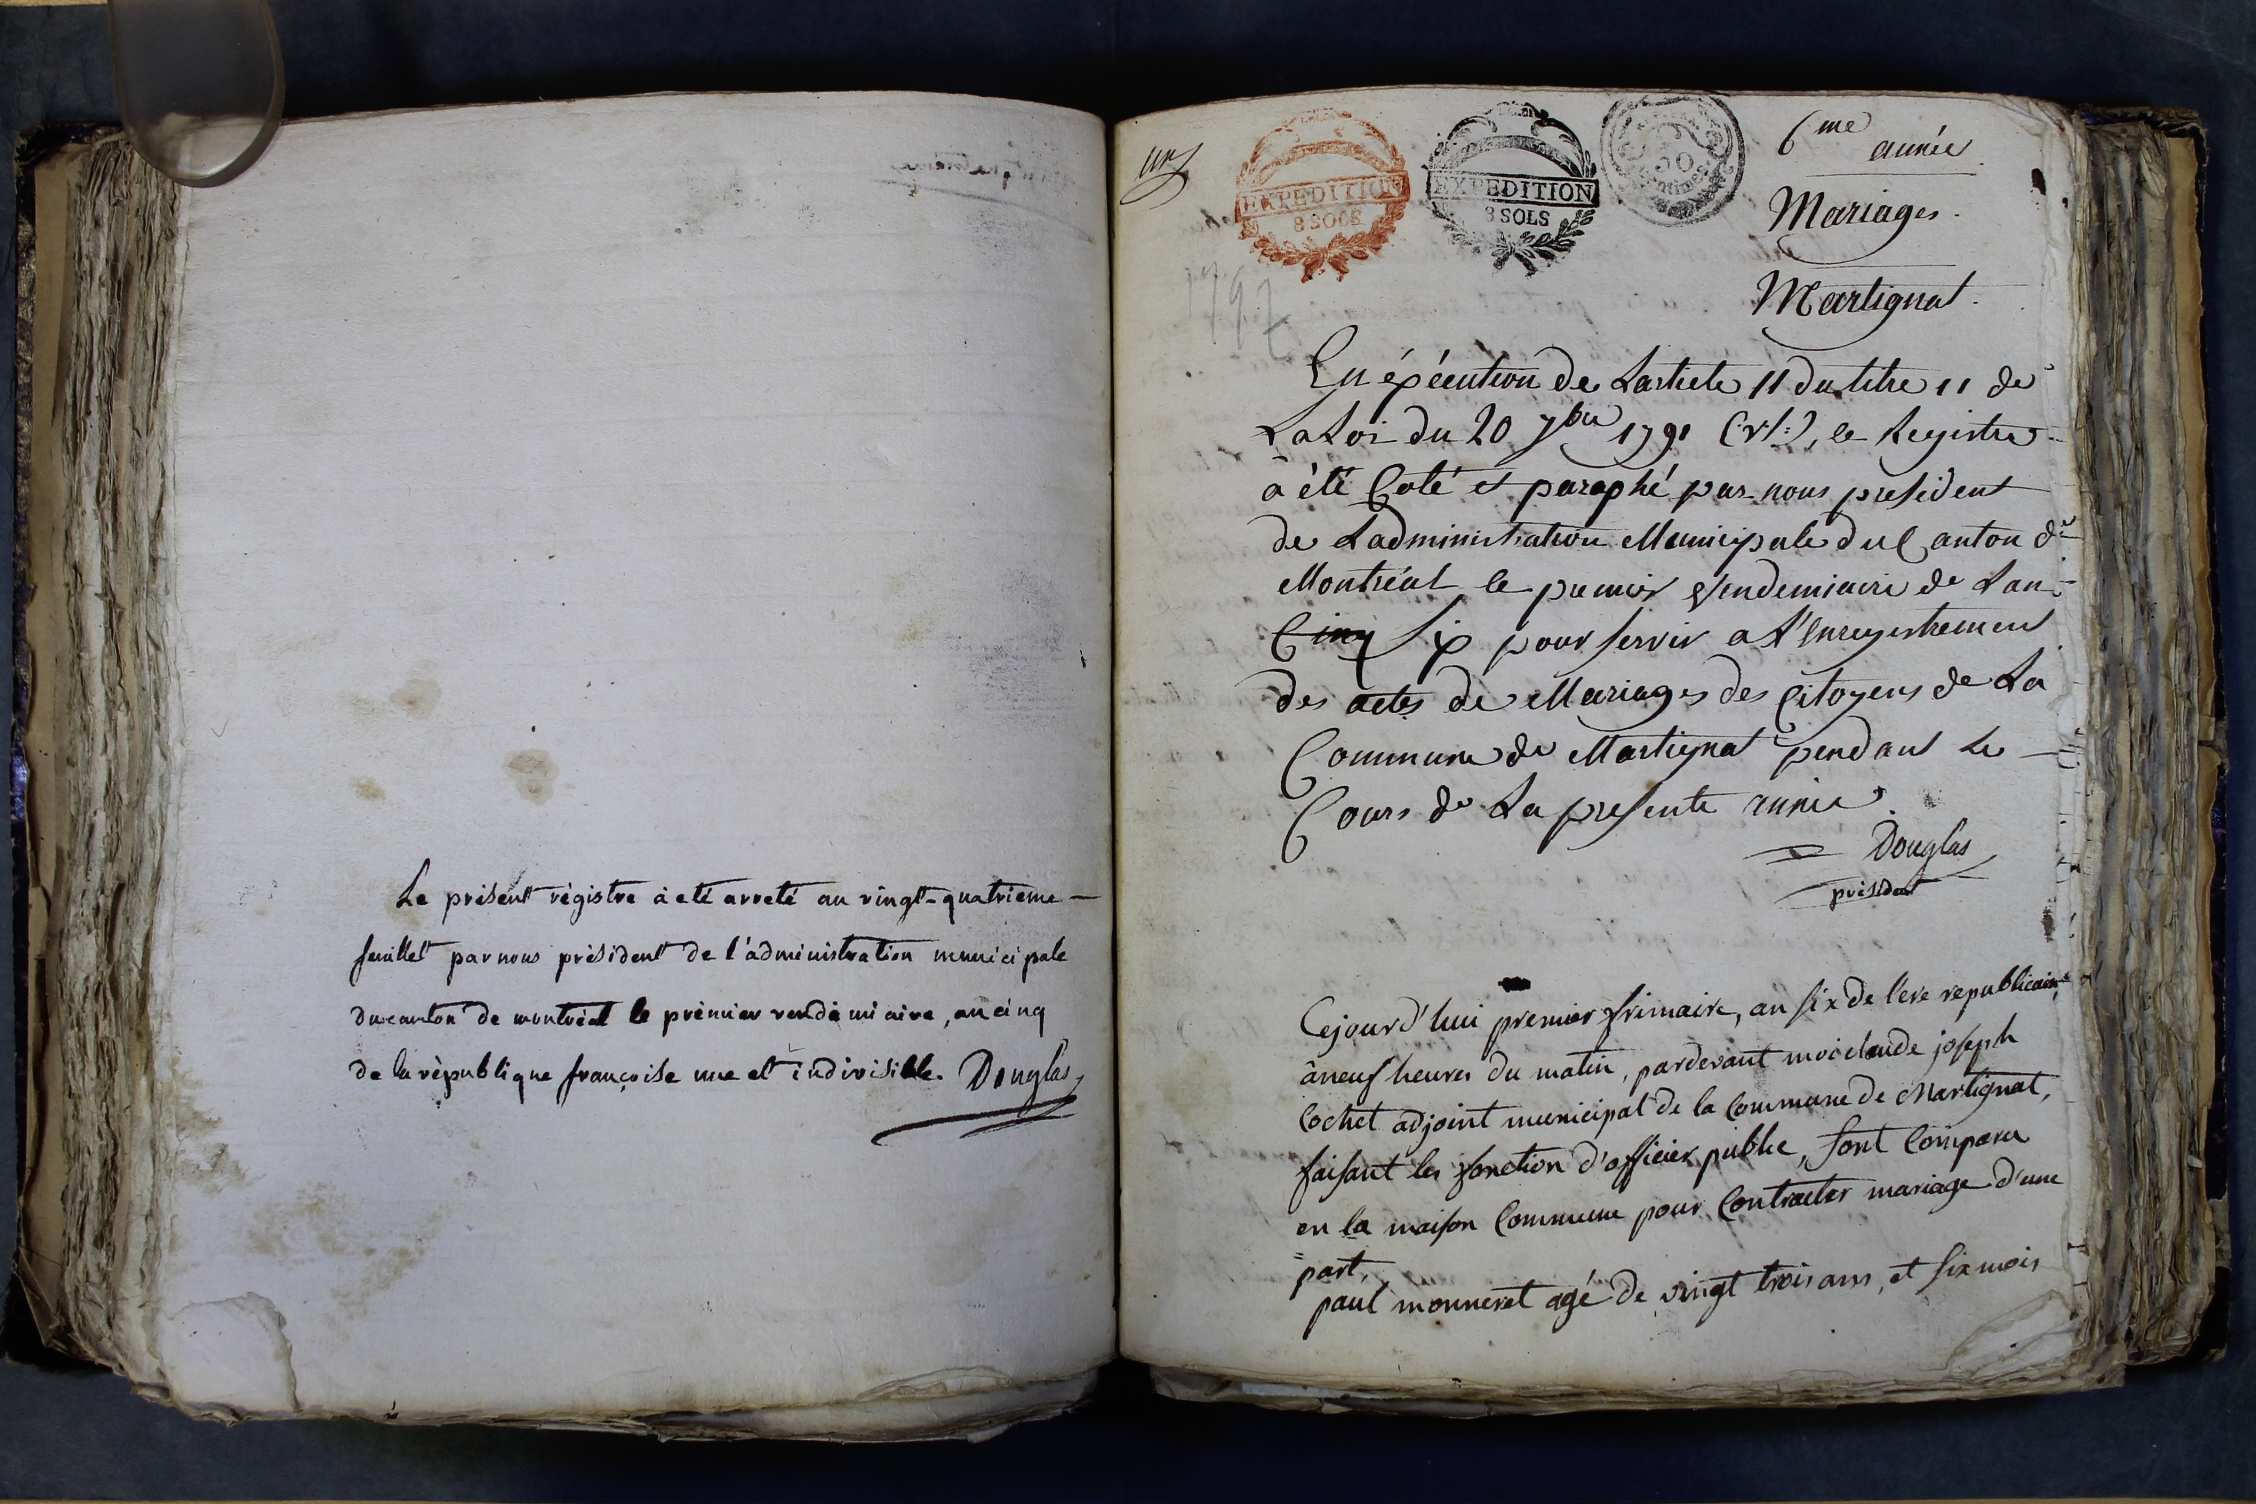 Le présent régistre à eté arreté au vingt-quatrieme
feuillet par nous président de l'administration municipale
du canton de montréal le prémier vendémiaire, an cinq
de la république françoise une et indivisible. Douglas
EXPEDITION
8 SOLS
EXPEDITION
8 SOLS
50
Centimes
6me
année
Mariages.
1797
Martignat.
En éxécution de L'article 11 du titre 11 de
La Loi du 20 7bre 1791 (vs:), le Registre
à été Coté et paraphé par nous president
de L'administration Municipale du Canton de
Montréal le premier Vendemiaire de L'an
Cinq Six pour servir a L'Enregistrement
des actes de Mariages des Citoyens de La
Commune de Martignat pendant Le
Cours de La presente année.
Douglas
président
Cejourd'hui premier frimaire, an six de l'ere republicaine
à neuf heures du matin, pardevant moi claude joseph
Cochet adjoint municipal de la Commune de Martignat,
faisant les fonction d'officier public, sont Comparu
en la maison Commune pour Contracter mariage d'une
part,
paul monneret agé de vingt trois ans, et six mois